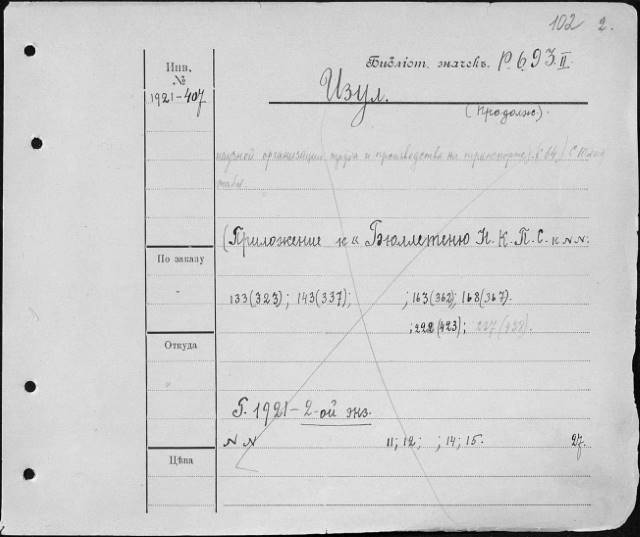 102 2.
Инв.
№
Библіот. значекъ. Р. 6. 93. II.
1921-407
Изул.
(Продолж).
научной организации труда и производства на транспорте).
(Приложение к « Бюллетеню Н. К. П. С. « NN:
По заказу
133(323); 143(337); ; 163(362); 168(367).
; 222(423);
Откуда
Г. 1921 - 2-ой экз.
NN 11; 12; ; 14; 15. 27.
Цѣна